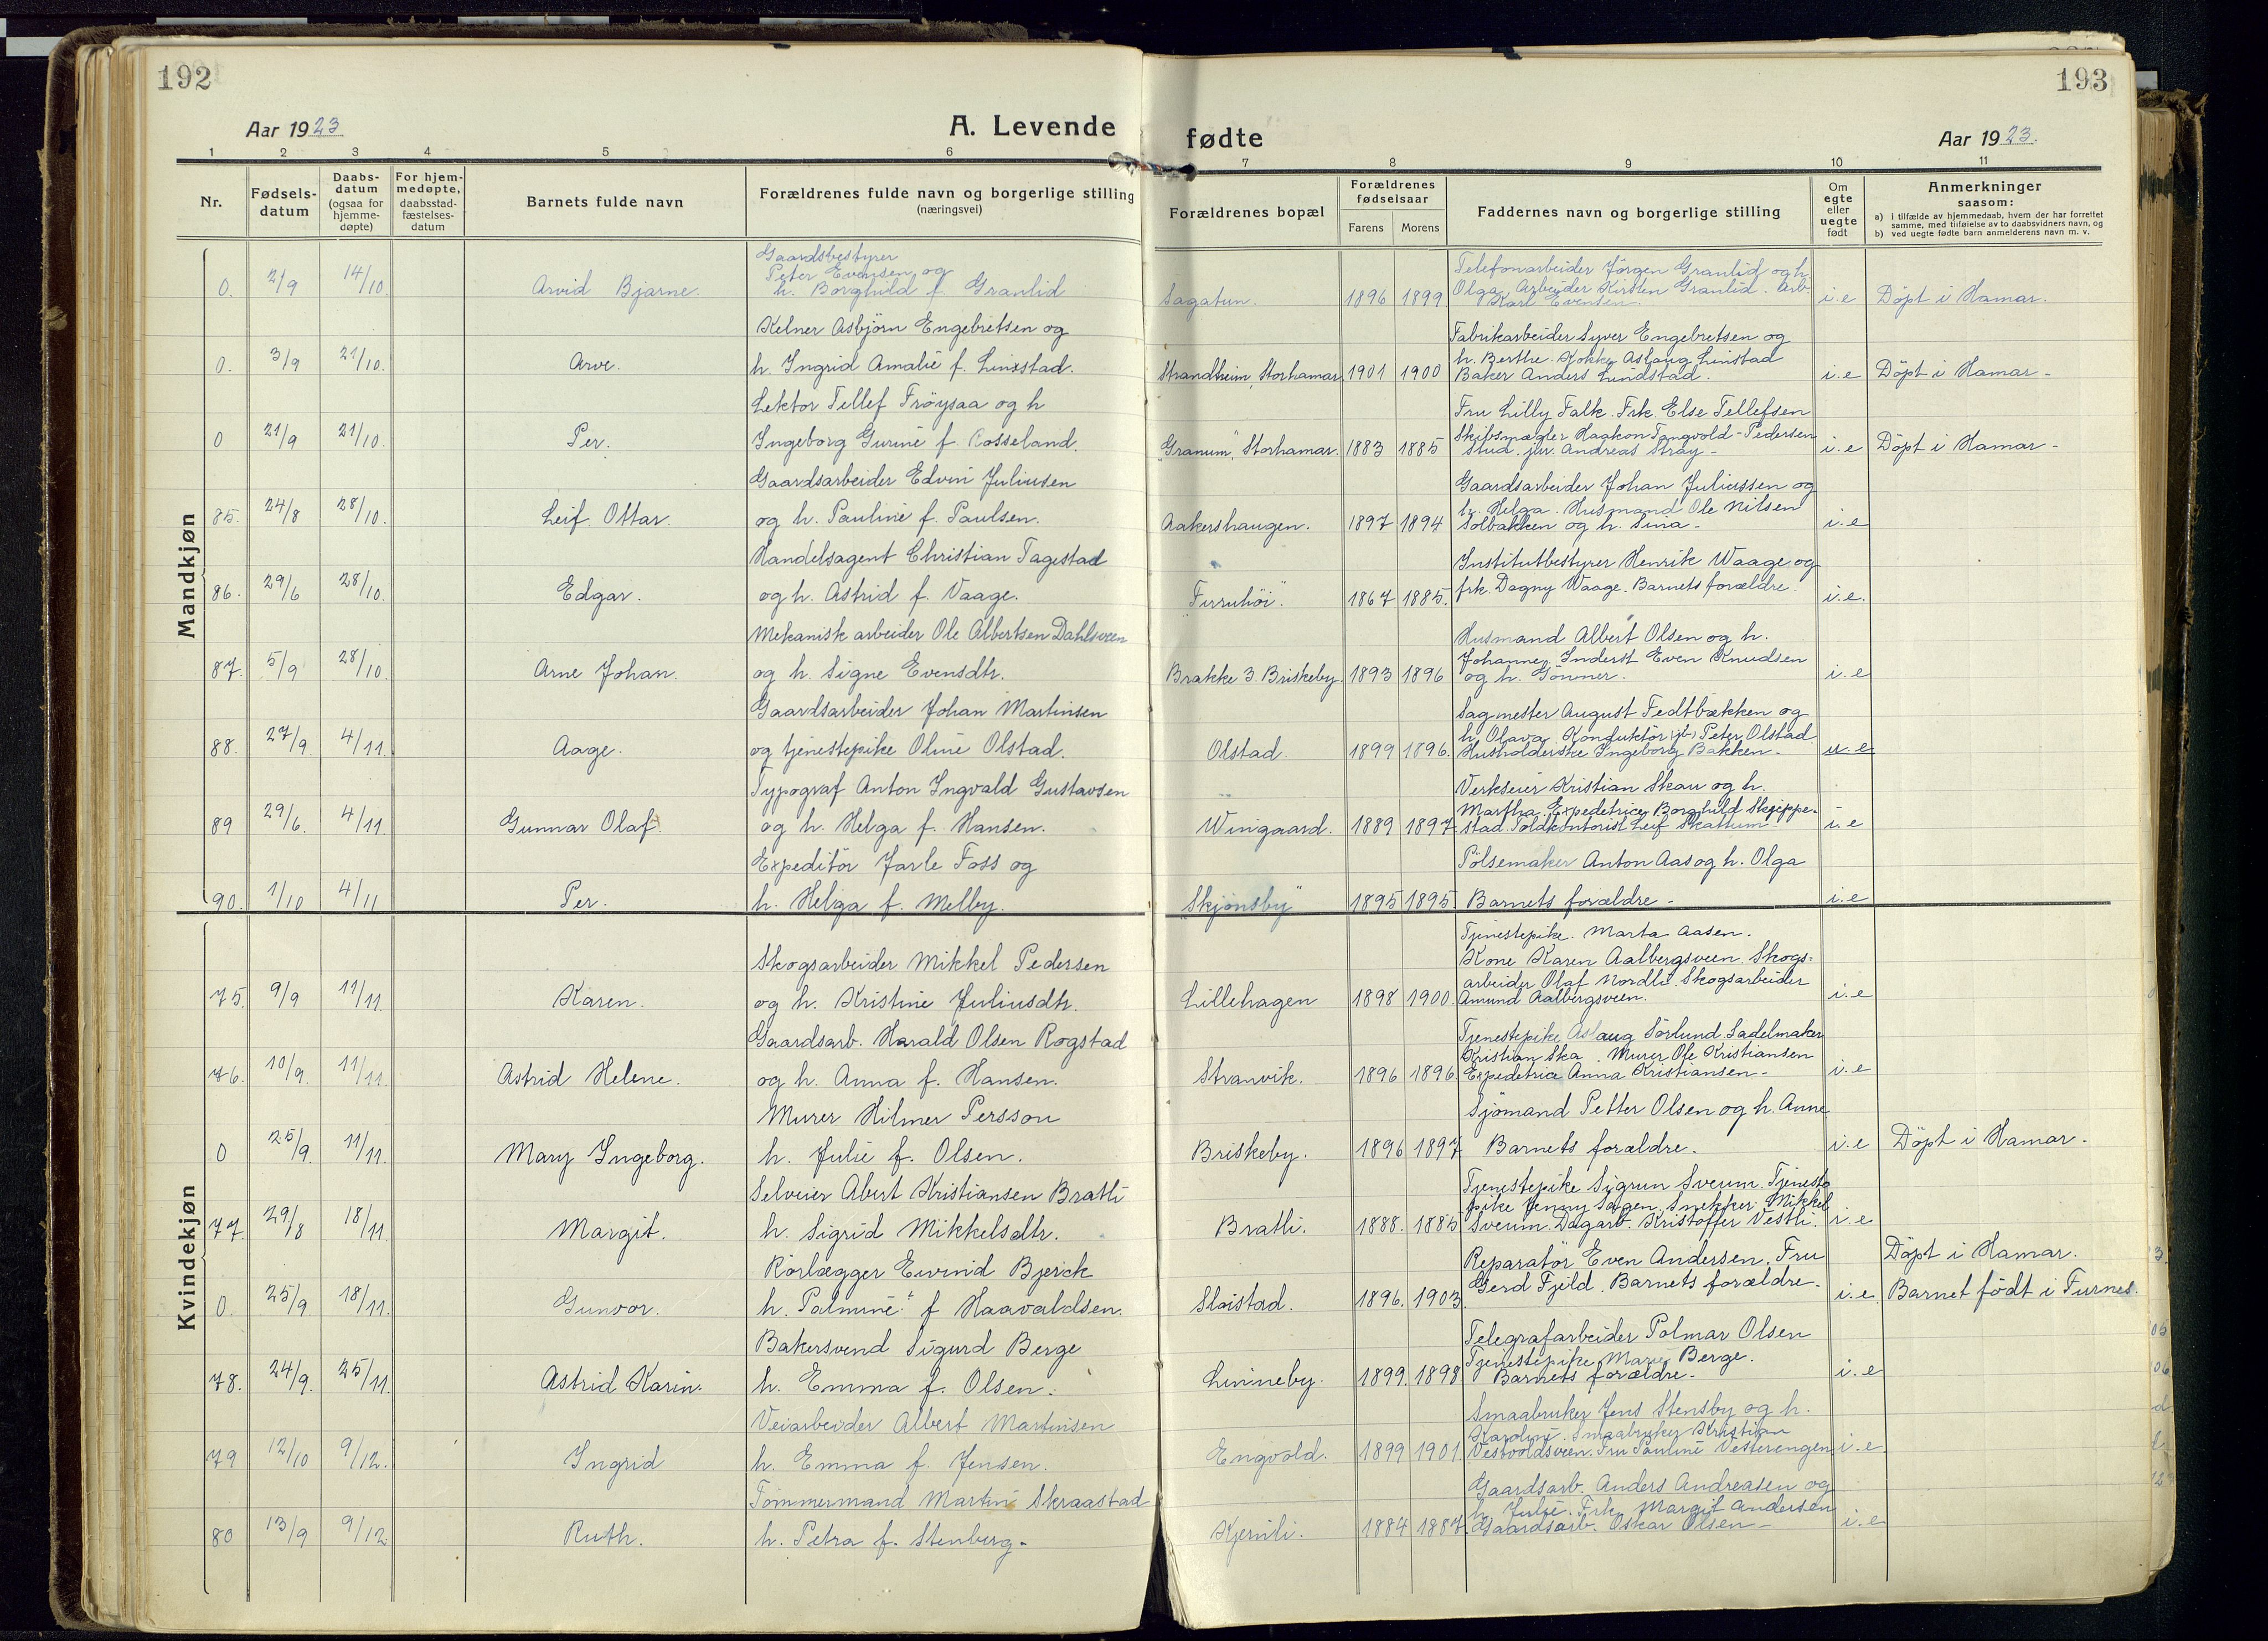 192
193
Aar 1923.
A. Levende
fødte
Aar 1923.
1 2 3 4 5 6 7 8 9 10 11
Nr.
Fødselsdatum
Daabsdatum (ogsaa for hjemmedøpte)
For hjemmedøpte, daabsstadfæstelsesdatum
Barnets fulde navn
Forældrenes fulde navn og borgerlige stilling (næringsvei)
Forældrenes bopæl
Forældrenes fødselsaar
Farens Morens
Faddernes navn og borgerlige stilling
Om egte eller uegte født
Anmerkninger saasom:
a) i tilfælde av hjemmedaab, hvem der har forrettet samme, med tilføielse av to daabsvidners navn, og
b) ved uegte fødte barn anmelderens navn m. v.
Mandkjøn
0. 2/9 14/10 Arvid Bjarne. Gaardsbestyrer Peter Evensen og h. Borghild f. Granlid Sagatun. 1896 1899 Telefonarbeider Jörgen Granlid og h. Olga. Arbeider Kirsten Granlid. Arb. Karl Evensen. i.e Döpt i Hamar.
0. 3/9 21/10. Arve. Kelner Asbjörn Engebretsen og h. Ingrid Amalie f. Linstad. Strandheim, Storhamar 1901 1900 Fabrikarbeider Syver Engebretsen og h. Berthe. Kokke Aslaug Linstad Baker Anders Lundstad. i.e Döpt i Hamar -
0 21/9 21/10. Per. Lektor Tellef Fröysaa og h Ingeborg Gurine f. Cosseland. "Granum", Storhamar. 1883 1885 Fru Lilly Falk. Frk. Else Tellefsen Skibsmægler Haakon Tangvold-Pedersen Stud. jur. Andreas Stray - i.e Döpt i Hamar -
85. 24/8 28/10. Leif Ottar. Gaardsarbeider Edvin Juliusen og h. Pauline f. Paulsen. Aakershaugen. 1897 1894 Gaardsarbeider Johan Juliussen og h. Helga. Husmand Ole Nilsen Solbakken og h. Sina - i.e
86. 29/6 28/10. Edgar. Handelsagent Christian Tagestad og h. Astrid f. Vaage. "Furuhöi". 1867 1885. Institutbestyrer Henrik Waage og frk. Dagny Waage. Barnets forældre. i.e.
87. 5/9 28/10. Arne Johan. Mekanisk arbeider Ole Albertsen Dahlsveen og h. Signe Evensdtr. Brakke 3. Briskeby. 1893 1896 Husmand Albert Olsen og h. Johanne. Inderst Even Knudsen og h. Gönner. i.e
88. 27/9. 4/11. Aage. Gaardsarbeider Johan Martinsen og tjenestepike Oline Olstad. Olstad. 1899 1896. Sagmester August Fedtbækken og h. Olava. Konduktör Peter Olstad. Husholderske Ingeborg Bakken - u.e
89 29/6. 4/11 Gunnar Olaf. Typograf Anton Ingvald Gustavsen og h. Helga f. Hansen. Wingaard. 1889 1897. Verkseier Kristian Skau og h. Martha. Expeditrice Borghild Skjeppestad. Toldkontorist Leif Skattum i.e
90. 1/10 4/11 Per. Expeditör Jarle Foss og h. Helga f. Melby. "Skjönsby" 1895 1895 Pölsemaker Anton Aas og h. Olga Barnets forældre - i.e
Kvindekjøn
75. 9/9 11/11 Karen. Skogsarbeider Mikkel Pedersen og h. Kristine Juliusdtr. Lillehagen 1898 1900. Tjenestepike. Marta Aasen. Kone Karen Aalbergsveen. Skogsarbeider Olaf Nordli. Skogsarbeider Amund Aalbergsveen. i.e
76. 10/9. 11/11. Astrid Helene. Gaardsarb. Harald Olsen Rogstad og h. Anna f. Hansen. Stranvik. 1896 1896. Tjenestepike Aslaug Sörlund. Sadelmaker Kristian Ska. Murer Ole Kristiansen Expedetrice Anna Kristiansen - i.e
0 25/9. 11/11. Mary Ingeborg. Murer Hilmer Persson h. Julie f. Olsen. Briskeby. 1896 1897 Sjömand Petter Olsen og h. Anne Barnets forældre. i.e Döpt i Hamar.
77. 29/8 18/11. Margit. Selveier Abert Kristiansen Bratli h. Sigrid Mikkelsdtr. Bratli. 1888. 1885 Tjenestepike Sigrun Sveum. Tjenestepike Jenny Sagen. Snekker Mikkel Sveum. Dagarb. Kristoffer Vestli. i.e
0. 25/9. 18/11. Gunvor. Rörlægger Eivind Bjerck h. "Palmine" f Haavaldsen. Sloistad. 1896. 1903 Reparatör Even Andersen. Fru Gerd Fjeld. Barnets forældre - i.e. Döpt i Hamar. Barnet födt i Furnes.
78. 24/9. 25/11. Astrid Karin. Bakersvend Sigurd Berge h. Emma f. Olsen. Linneby. 1899. 1898 Telegrafarbeider Polmar Olsen Tjenestepike Marie Berge. Barnets forældre - i.e
79 12/10 9/12. Ingrid Veiarbeider Albert Martinsen h. Emma f. Jensen. Engvold. 1899 1901. Smaabruker Jens Stensby og h. Karoline. Smaabruker Kristian Vestvoldsveen. Fru Pauline Vesterengen i.e
80 13/9 9/12 Ruth. Tömmermand Martin Skraastad h. Petra f. Stenberg - Kjernli. 1884 1887. Gaardsarb. Anders Andreasen og h. Julie. Frk. Margit Andersen Gaardsarb. Oskar Olsen - i.e